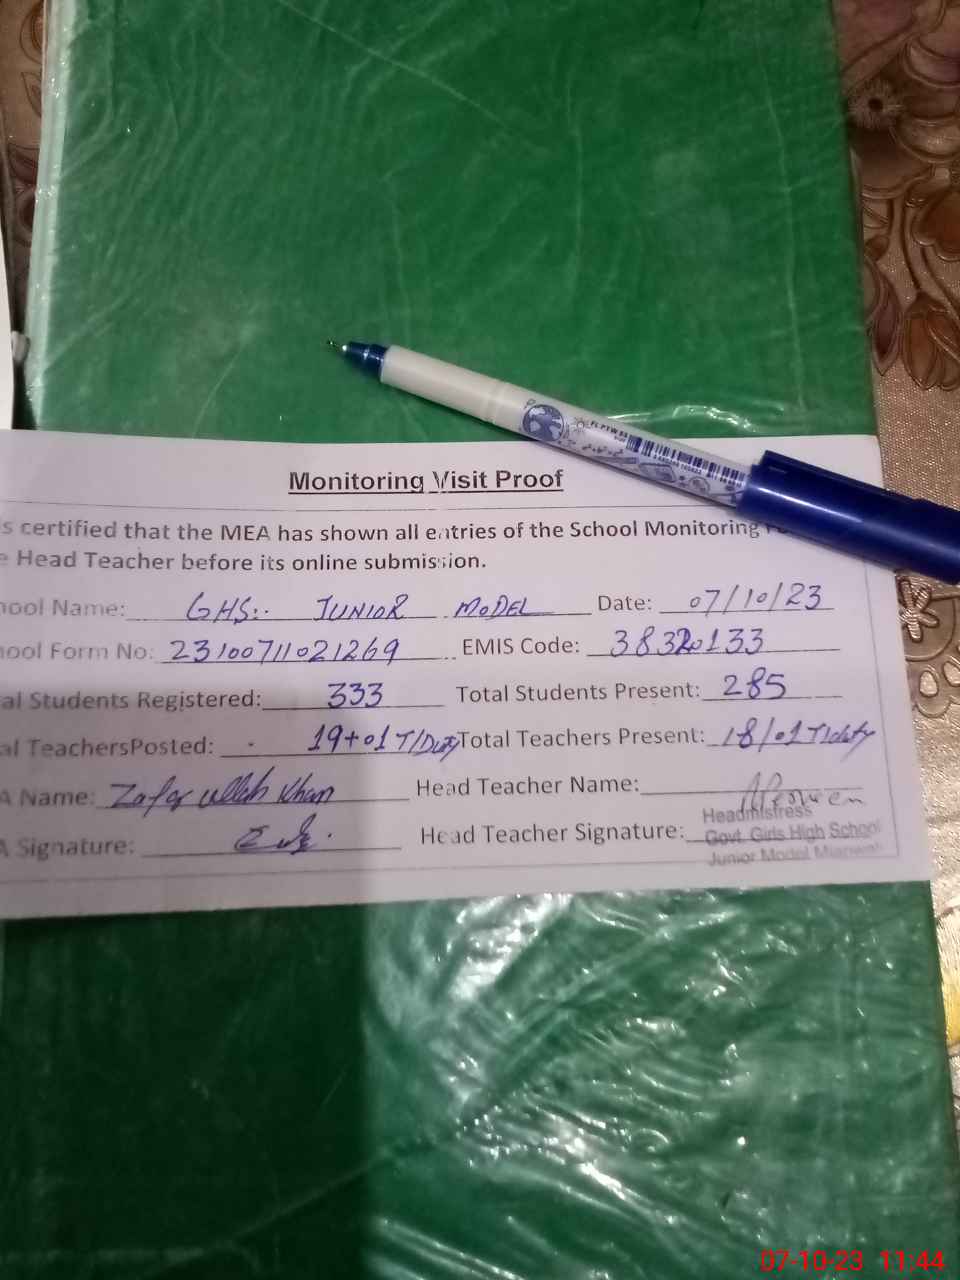 Monitoring Visit Proof
s certified that the MEA has shown all entries of the School Monitoring
e Head Teacher before its online submission.
hool Name: GHS.. JUNIOR MODEL Date: 07/10/23
hool Form No: 23100711021269 EMIS Code: 38320133
al Students Registered: 333 Total Students Present: 285
al TeachersPosted: 19+01 T/Duty Total Teachers Present: 18/01 T/duty
A Name: Zafar ullah Khan Head Teacher Name:
A Signature: Head Teacher Signature:
Headmistress
Govt. Girls High School
Junior Model Mianwali
07-10-23 11:44